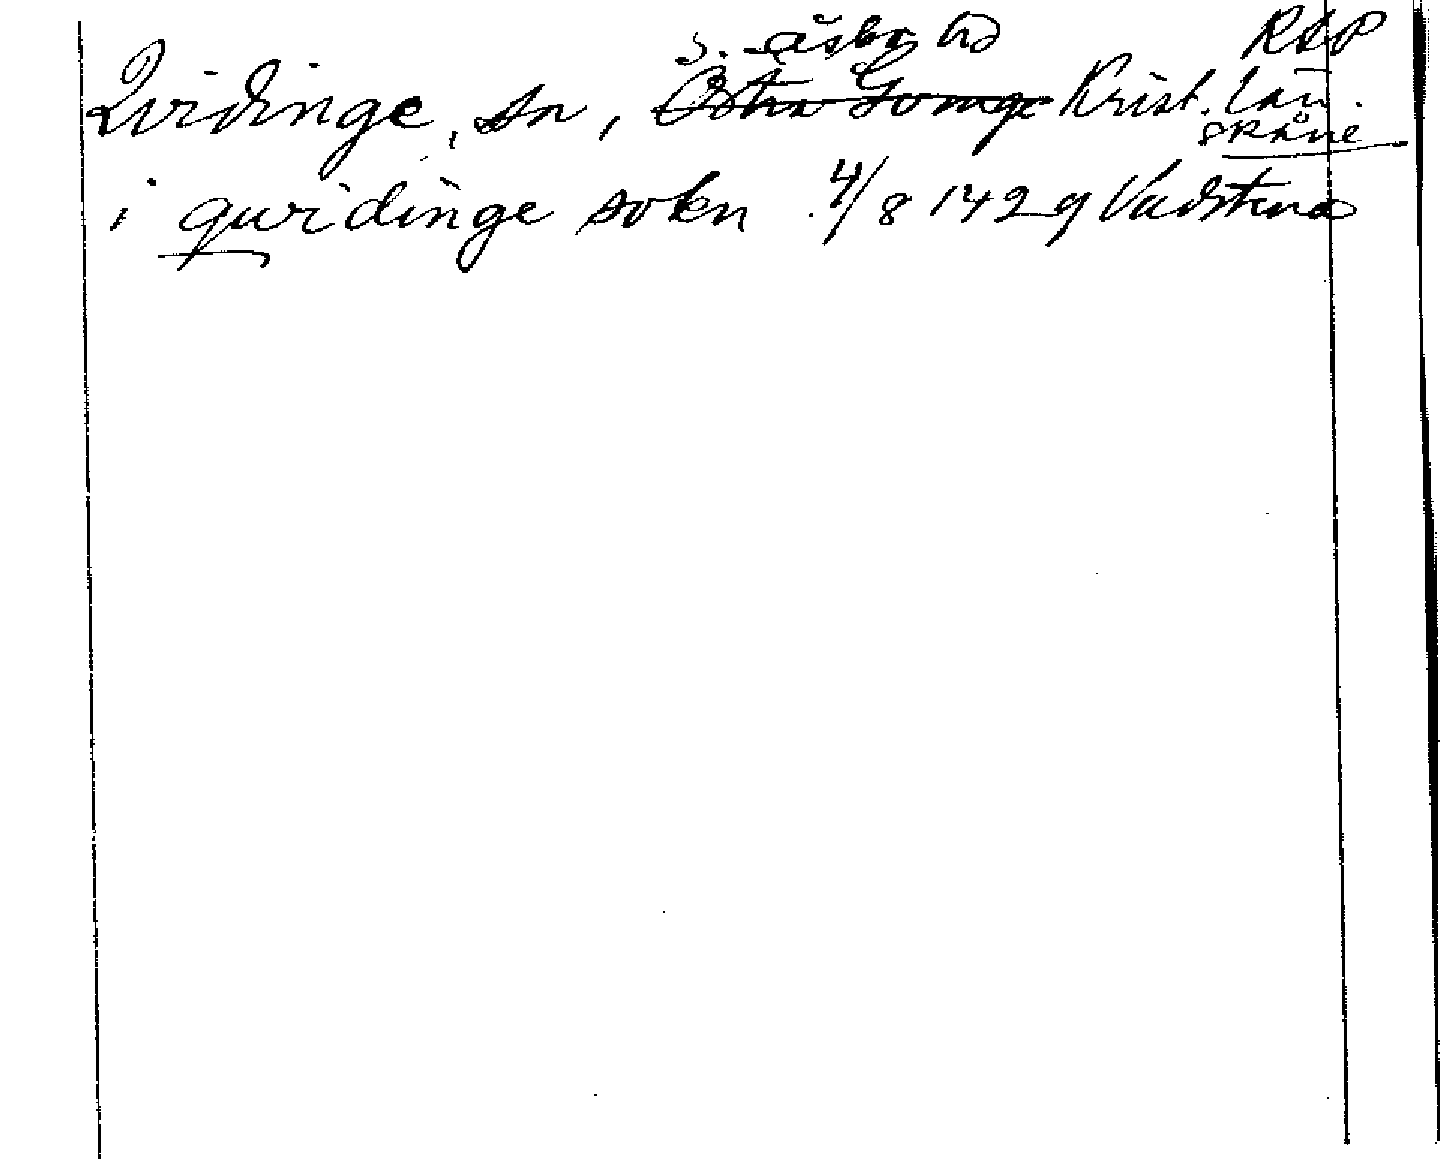 S. Åsbo hd RAP
Qvidinge, sn, Östra Göinge Krist. län.
SKÅNE
i quidinge sokn 4/8 1429 Vadstena